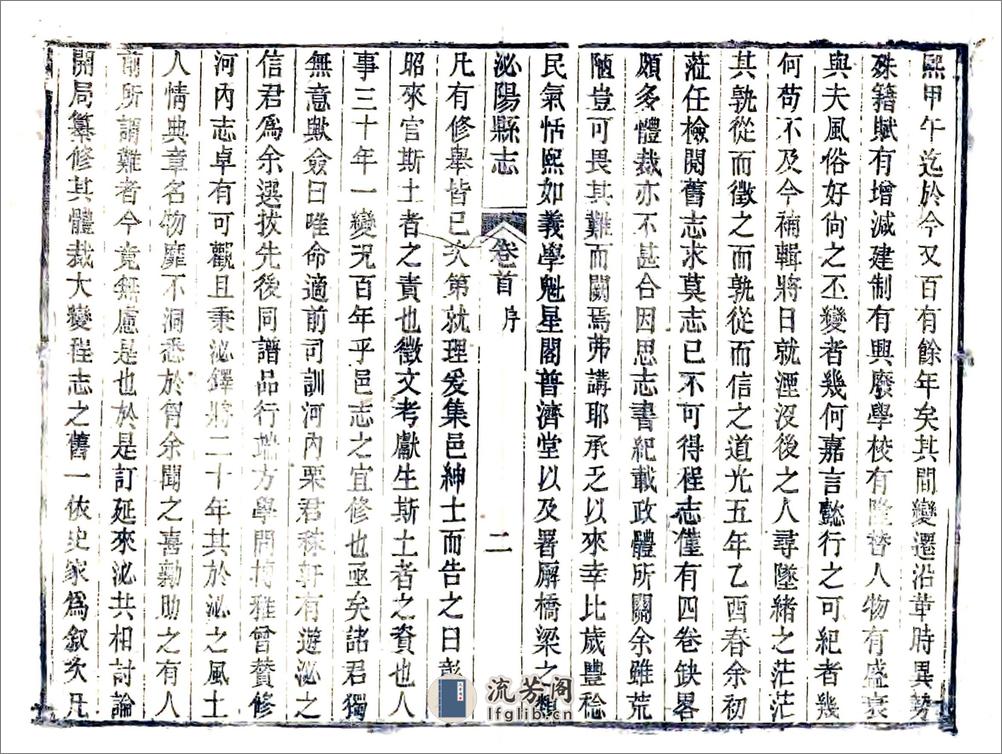 熙甲午迄於今又百有餘年矣其間變遷沿革時異勢
殊籍賦有增減建制有興廢學校有隆替人物有盛衰
與夫風俗好尙之丕變者幾何嘉言懿行之可紀者幾
何苟不及今補輯將日就湮沒後之人尋墜緒之茫茫
其孰從而徵之而孰從而信之道光五年乙酉春余初
蒞任檢閱舊志求莫志已不可得程志僅有四卷缺畧
頗多體裁亦不甚合因思志書紀載政體所關余雖荒
陋豈可畏其難而闕焉弗講耶承乏以來幸比歲豐稔
民氣恬熙如義學魁星閣普濟堂以及署廨橋梁之類
泌陽縣志
卷首
序
二
凡有修舉皆已次第就理爰集邑紳士而告之曰彰
昭來官斯土者之責也徵文考獻生斯土者之資也人
事三十年一變况百年乎邑志之宜修也亟矣諸君獨
無意歟僉曰唯命適前司訓河內栗君秣軒有遊泌之
信君爲余選拔先後同譜品行端方學問博雅曾贊修
河內志卓有可觀且秉泌鐸將二十年其於泌之風土
人情典章名物靡不洞悉於胷余聞之喜勷助之有人
前所謂難者今竟無慮是也於是訂延來泌共相討論
開局纂修其體裁大變程志之舊一依史家爲叙次凡
流芳阁
lfglib.cn